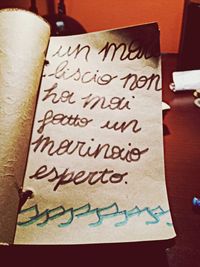 un mare
liscio non
ha mai
fatto un
marinaio
esperto.